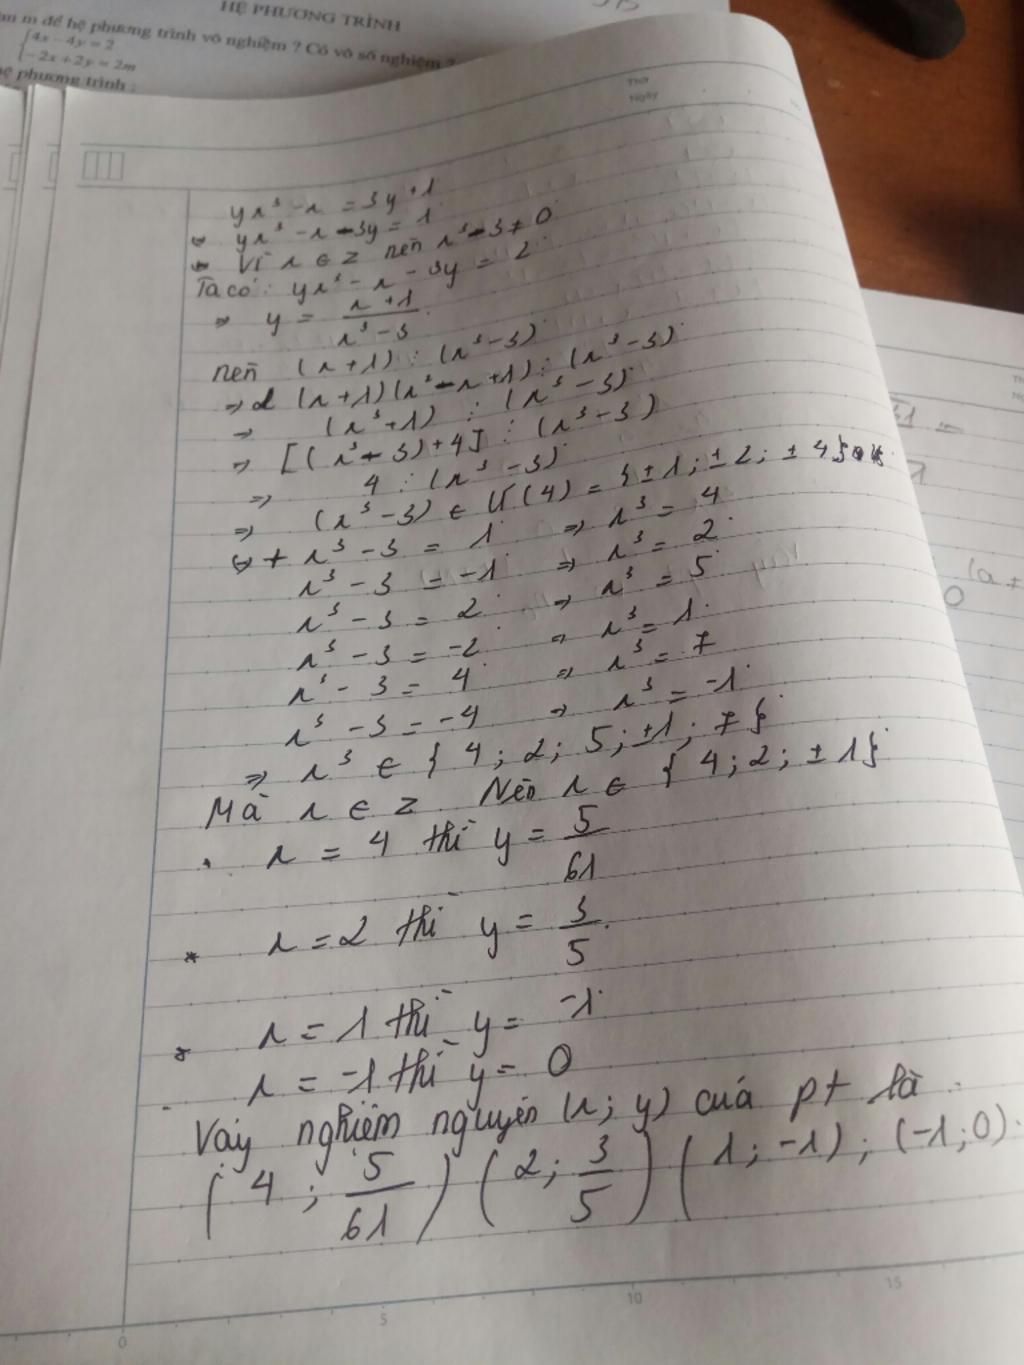 HỆ PHƯƠNG TRÌNH
m để hệ phương trình vô nghiệm ? Có vô số nghiệm ?
4x - 4y = 2
-2x + 2y = 2m
hệ phương trình :
Thứ
Ngày
yx³ - x = 3y + 1
⇔ yx³ - x - 3y = 1
Vì x ∈ Z nên x³ - 3 ≠ 0
Ta có: yx³ - x - 3y = 1
⇒ y = (x + 1)/(x³ - 3)
nên (x + 1) ⋮ (x³ - 3)
⇒ (x + 1)(x² - x + 1) ⋮ (x³ - 3)
⇒ (x³ + 1) ⋮ (x³ - 3)
⇒ [(x³ - 3) + 4] ⋮ (x³ - 3)
⇒ 4 ⋮ (x³ - 3)
⇒ (x³ - 3) ∈ Ư(4) = {±1; ±2; ±4}
⇔ + x³ - 3 = 1 ⇒ x³ = 4
x³ - 3 = -1 ⇒ x³ = 2
x³ - 3 = 2 ⇒ x³ = 5
x³ - 3 = -2 ⇒ x³ = 1
x³ - 3 = 4 ⇒ x³ = 7
x³ - 3 = -4 ⇒ x³ = -1
⇒ x³ ∈ {4; 2; 5; ±1; 7}
Mà x ∈ Z Nên x ∈ {4; 2; ±1}
. x = 4 thì y = 5/61
* x = 2 thì y = 3/5
* x = 1 thì y = -1
. x = -1 thì y = 0
Vậy nghiệm nguyên (x; y) của pt là
(4; 5/61) (2; 3/5) (1; -1); (-1; 0).
0 5 10 15